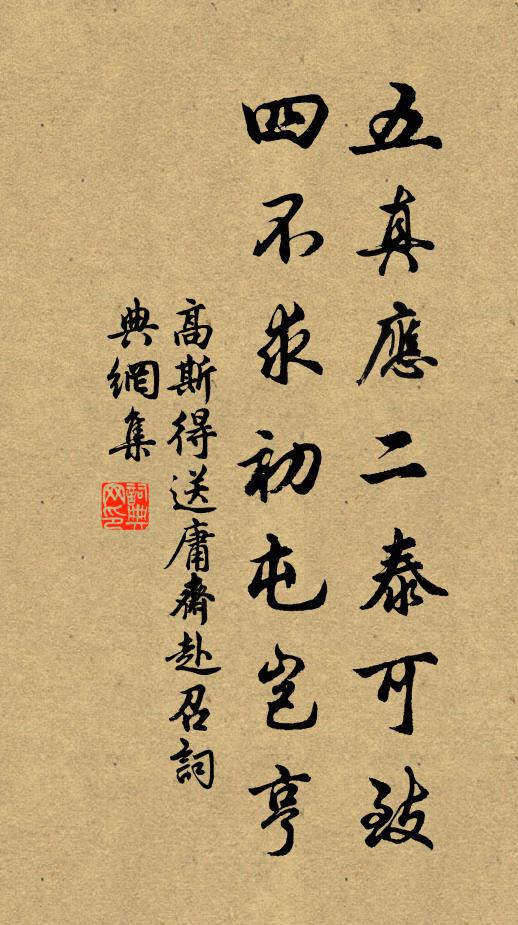 五真應二泰可致
四不求初屯豈亨
高斯得送庸齋赴召詞
典網集
詞典
网印